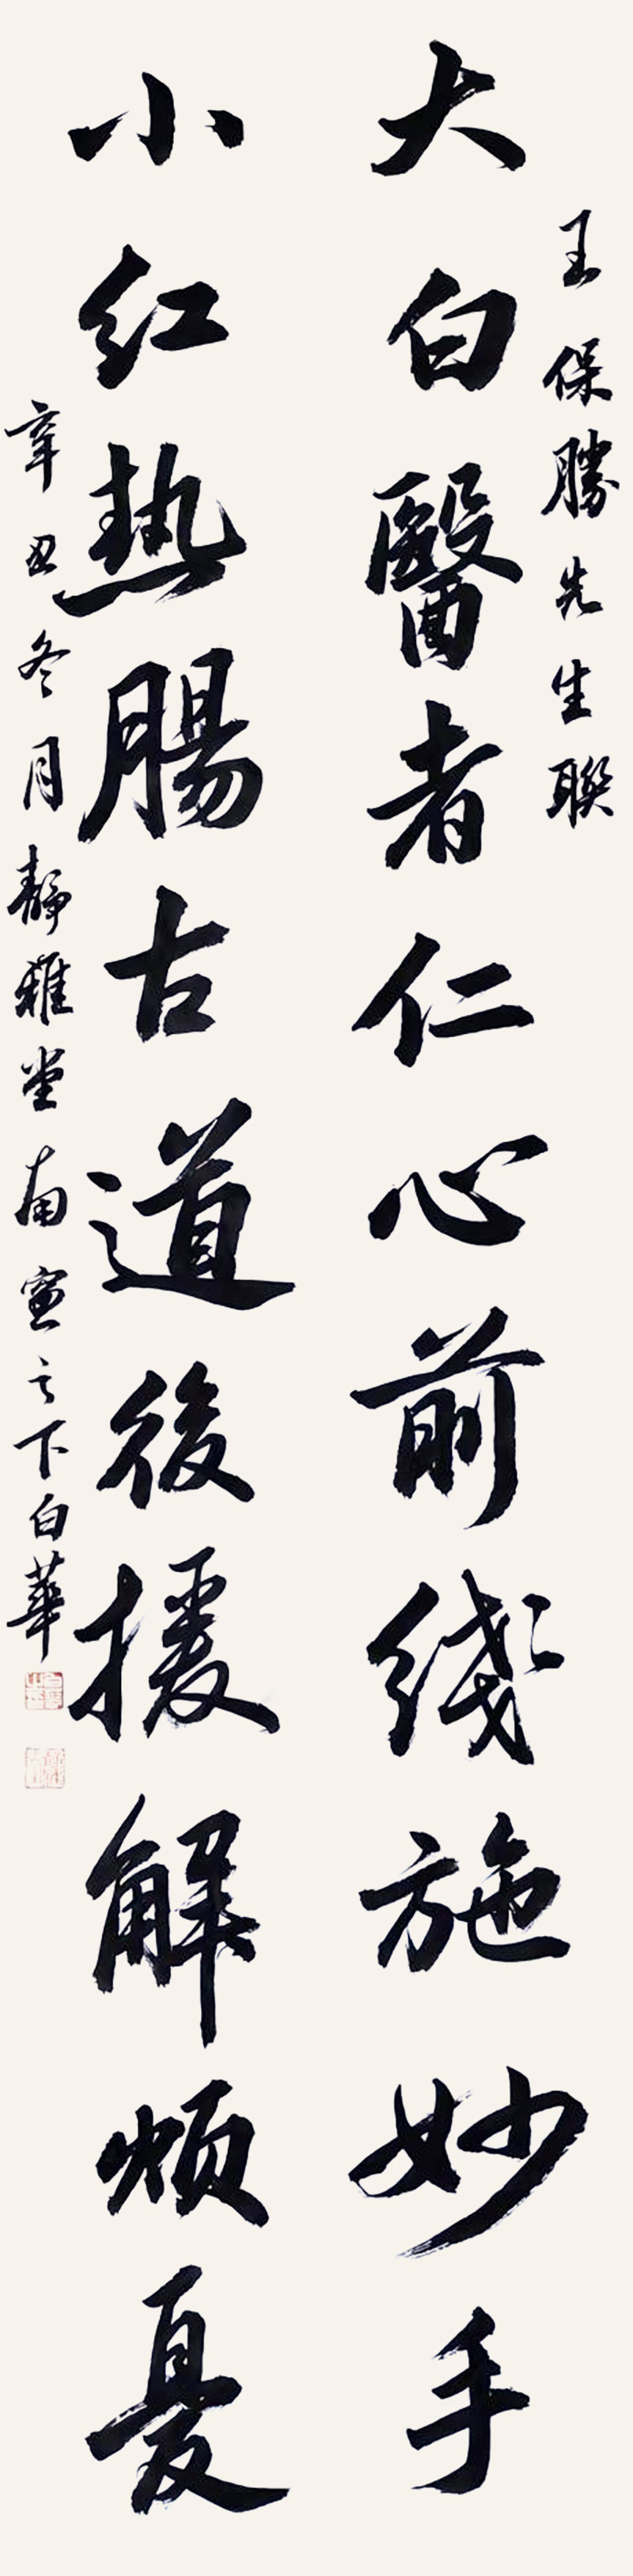 王保勝先生聯
大白醫者仁心前线施妙手
小红热腸古道後援解烦憂
辛丑冬月靜雅堂南窗之下白華